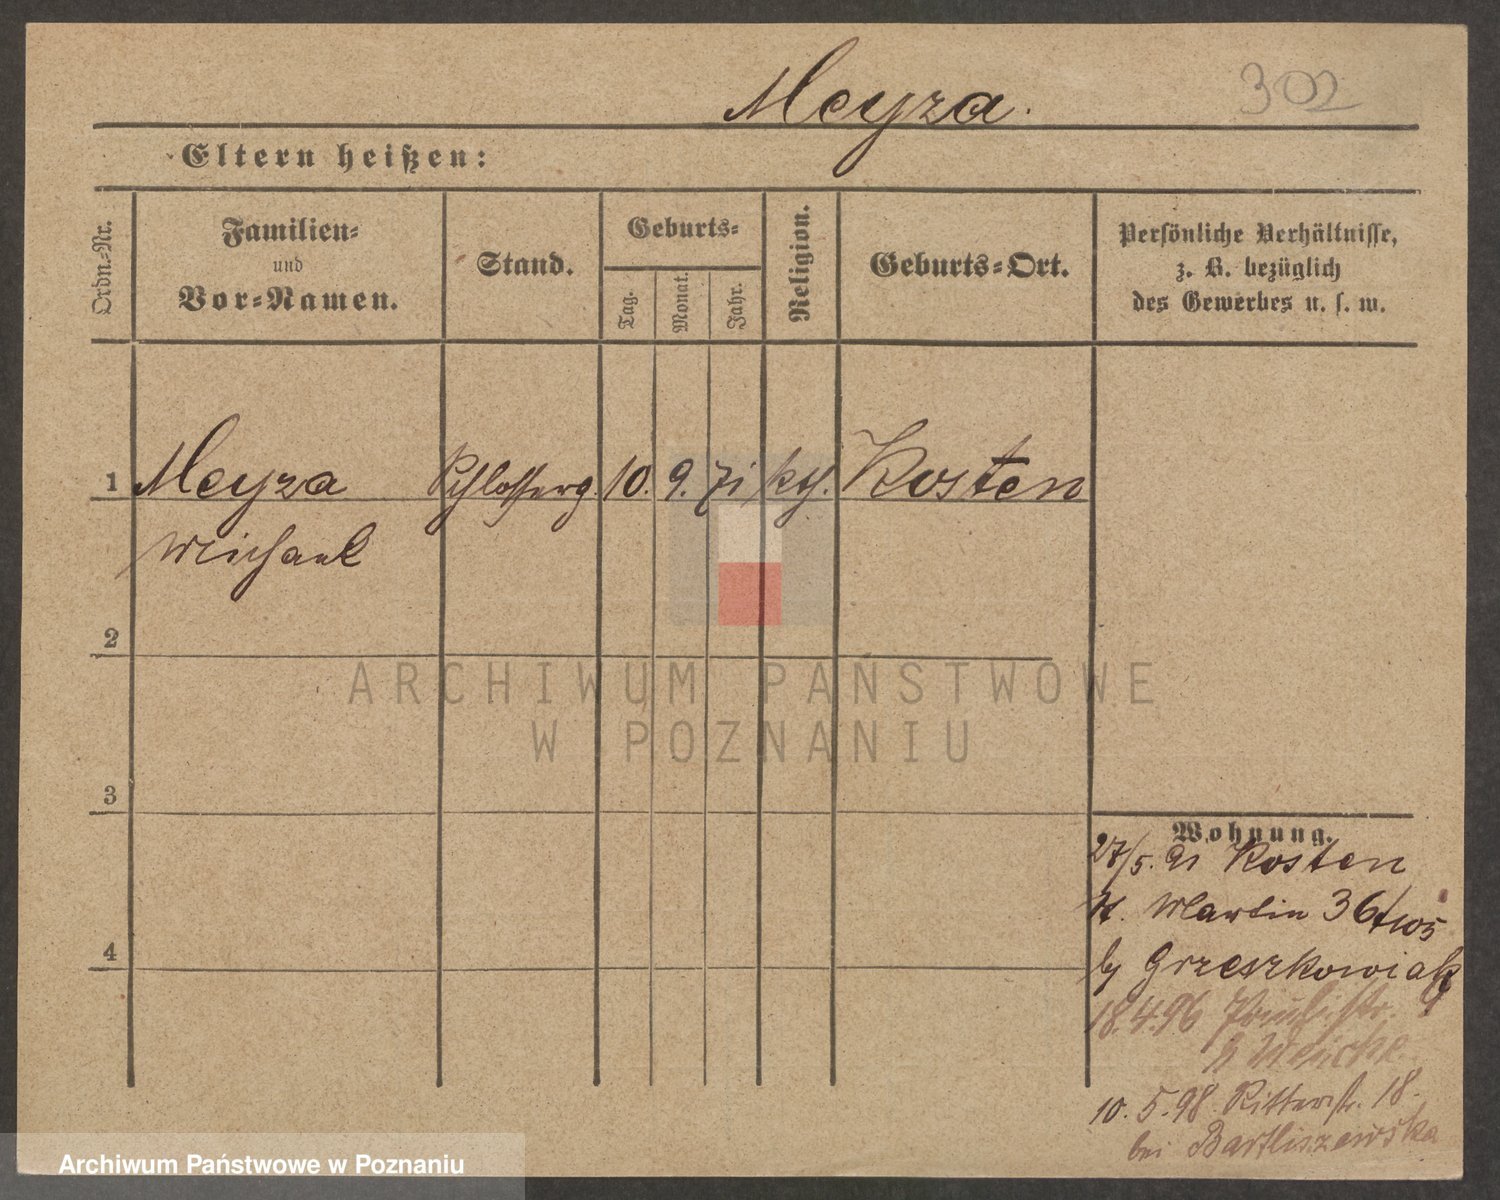 Meyza.
302
Eltern heißen:
Ordn.-Nr.
Familien-
und
Vor-Namen.
Stand.
Geburts-
Tag.
Monat.
Jahr.
Religion.
Geburts-Ort.
Persönliche Verhältnisse,
z. B. bezüglich
des Gewerbes u. s. w.
1 Meyza Schlosserg. 10. 9. 71 kth. Kosten
Michael
2
3
4
Wohnung.
27/5. 91 Kosten
St. Martin 36
by Grzeszkowiak
18.4.96
10. 5. 98. Ritterstr. 18.
bei Bartliszewska
ARCHIWUM PAŃSTWOWE
W POZNANIU
Archiwum Państwowe w Poznaniu